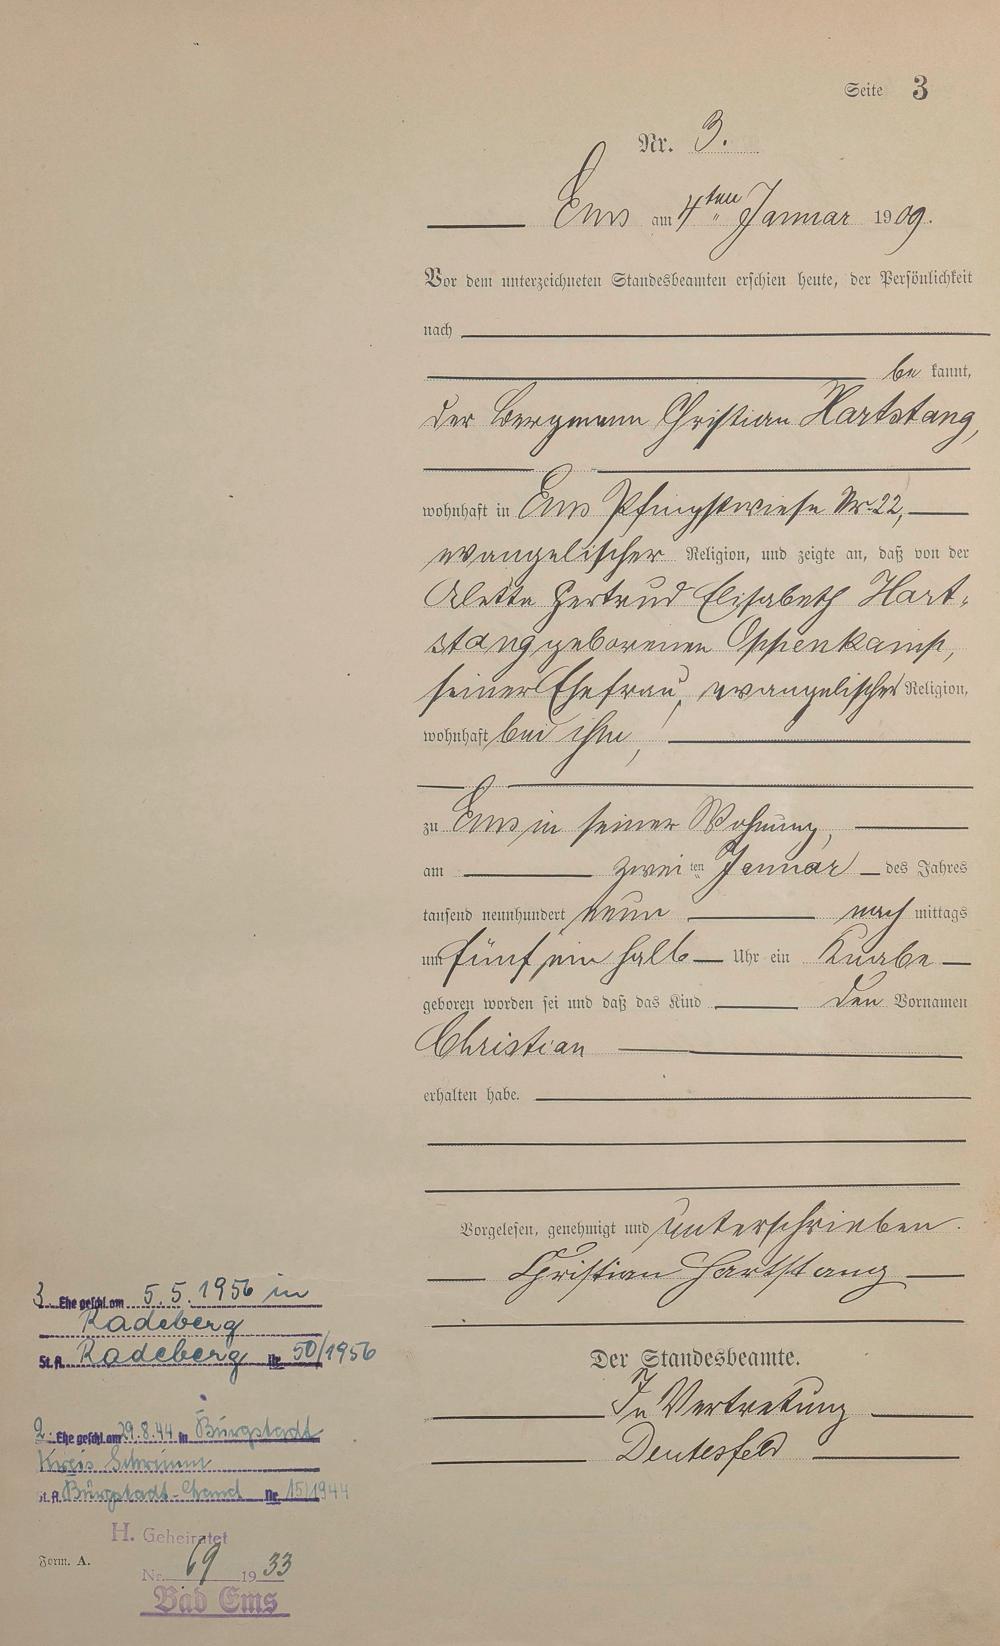 Seite 3
Nr. 3.
Ems am 4ten Januar 1909.
Vor dem unterzeichneten Standesbeamten erschien heute, der Persönlichkeit
nach
be kannt,
der Bergmann Christian Hartstang,
wohnhaft in Ems Pfingstwiese Nr. 22,
evangelischer Religion, und zeigte an, daß von der
Aletta Gertrud Elisabeth Hart-
stang geborenen Oppenkamp,
seiner Ehefrau, evangelischer Religion,
wohnhaft bei ihm,
zu Ems in seiner Wohnung,
am zweiten Januar des Jahres
tausend neunhundert neun nach mittags
um fünf ein halb Uhr ein Knabe
geboren worden sei und daß das Kind den Vornamen
Christian
erhalten habe.
Vorgelesen, genehmigt und unterschrieben.
Christian Hartstang
Der Standesbeamte.
In Vertretung
Deutesfeld
3. Ehe geschl. am 5.5.1956 in
Radeberg
St. A. Radeberg Nr. 50/1956
2. Ehe geschl. am 29.8.44 in Bürgstadt
Kreis Schrimm
St. A. Bürgstadt- Nr. 15/1944
H. Geheiratet
Nr. 69 1933
Bad Ems
Form. A.